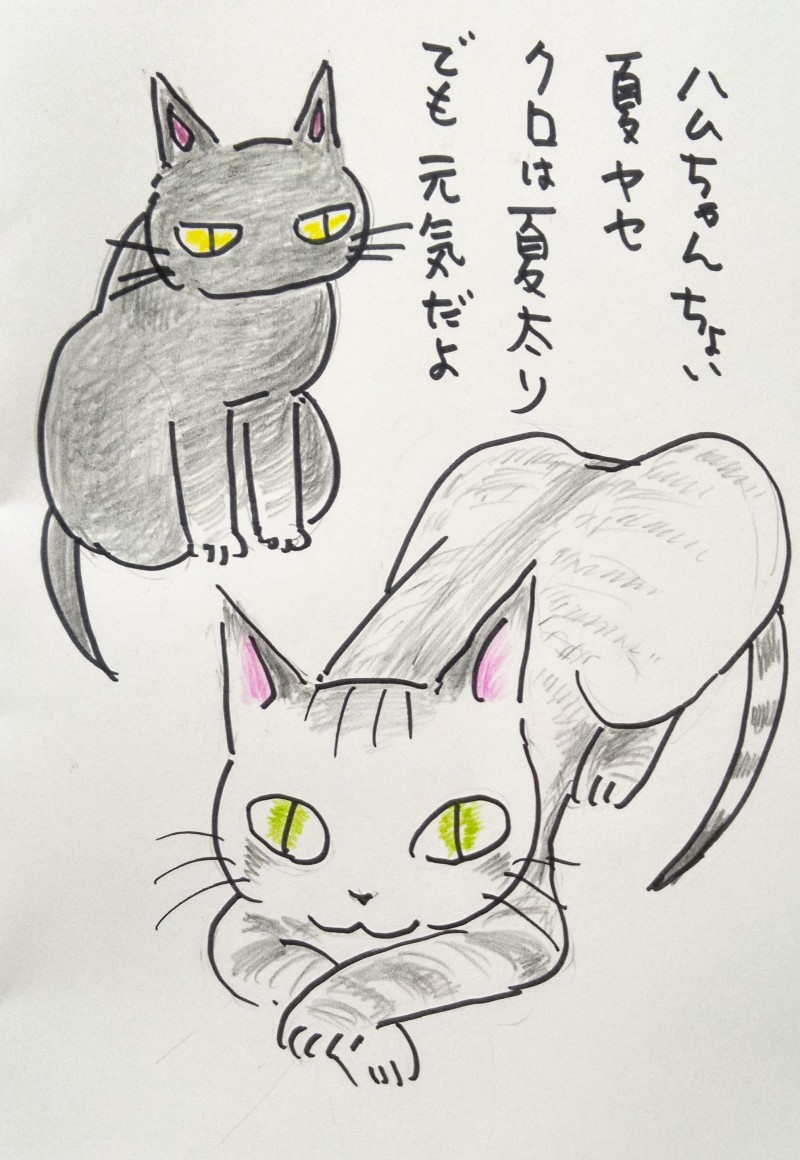 ハムちゃんちょい
夏ヤセ
クロは夏太り
でも元気だよ